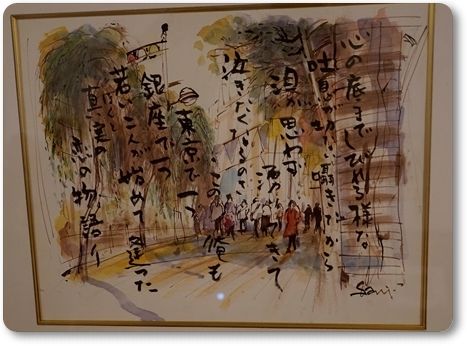 心の底までしびれる様な
吐息が切ない囁きだから
涙が思わず湧いてきて
泣きたくなるのさ
この俺も
東京で一つ
銀座で一つ
若い二人が始めて逢った
真実の恋の物語り